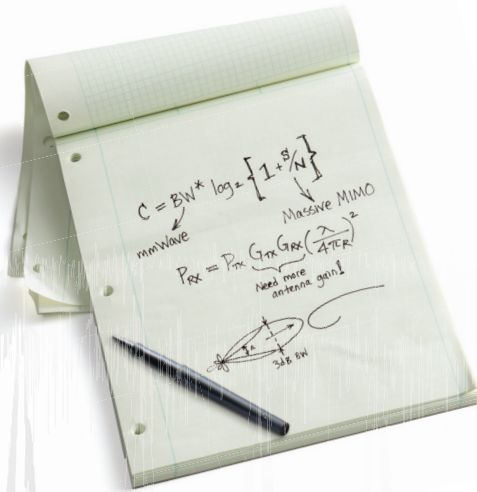 C = BW* log₂ {1 + S/N}
mmWave
Massive MIMO
P_RX = P_TX G_TX G_RX (λ/4πR)²
Need more
antenna gain!
3dB BW